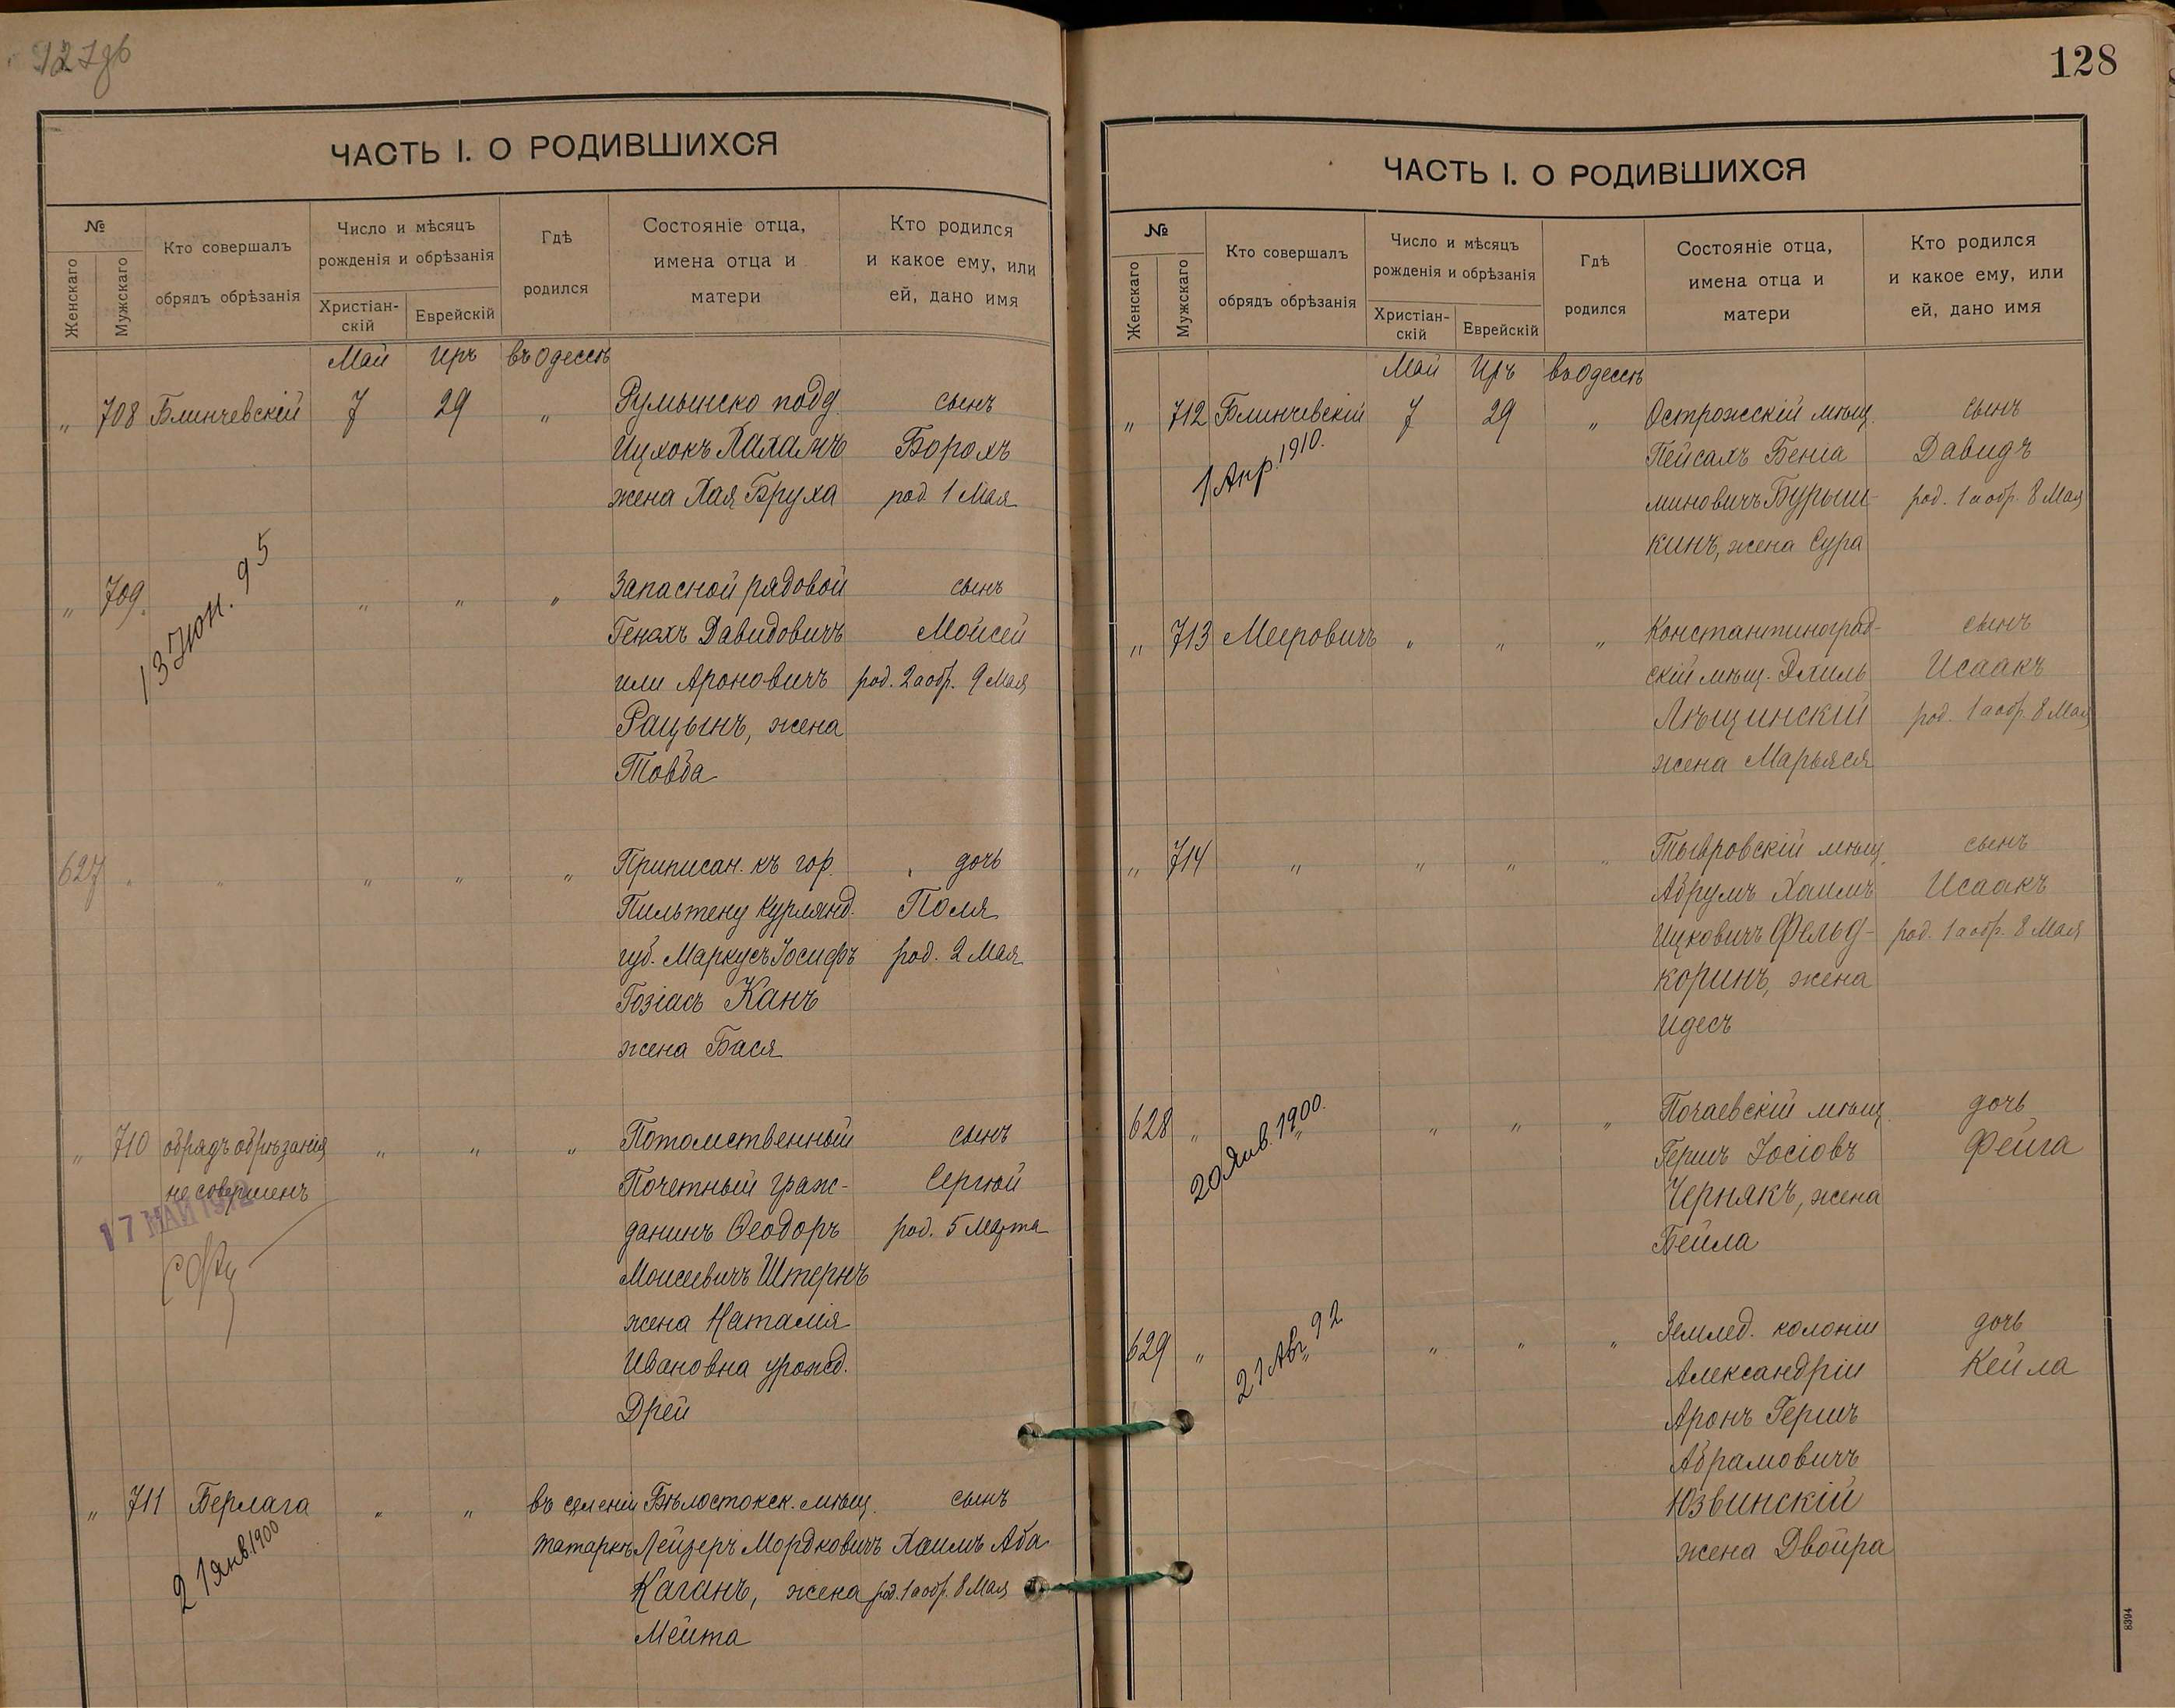 127об
ЧАСТЬ I. О РОДИВШИХСЯ
№
Женскаго
Мужскаго
Кто совершалъ
обрядъ обрѣзанія
Число и мѣсяцъ
рожденія и обрѣзанія
Христіан-
скій
Еврейскій
Гдѣ
родился
Состояніе отца,
имена отца и
матери
Кто родился
и какое ему, или
ей, дано имя
Май Иръ въ Одессѣ
„ 708 Блинчевскій 7 29 „ Румынско подд. сынъ
Ицхокъ Хахамъ Борохъ
жена Хая Бруха род 1 Мая
„ 709. „ „ „ Запасной рядовой сынъ
13 Іюн. 95
Генахъ Давидовичъ Моисей
или Ароновичъ род. 2 а обр. 9 Мая
Рацынъ, жена
Товба
627 „ „ „ „ „ Приписан. къ гор. дочь
Пильтену Курлянд. Поля
губ. Маркусъ Іосифъ род. 2 Мая
Гозіасъ Канъ
жена Бася
„ 710 обрядъ обрѣзанія „ „ „ Потомственный сынъ
не совершенъ Почетный граж- Сергѣй
17 МАЙ 1912
данинъ Ѳеодоръ род. 5 Марта
Моисеевичъ Штернъ
жена Наталія
Ивановна урожд.
Дрей
„ 711 Берлага „ „ въ селеніи Бѣлостокск. мѣщ. сынъ
21 Янв. 1900
татаркѣ Лейзеръ Мордковичъ Хаимъ Аба
Каганъ, жена род. 1 а обр. 8 Мая
Мейта
128
ЧАСТЬ I. О РОДИВШИХСЯ
№
Женскаго
Мужскаго
Кто совершалъ
обрядъ обрѣзанія
Число и мѣсяцъ
рожденія и обрѣзанія
Христіан-
скій
Еврейскій
Гдѣ
родился
Состояніе отца,
имена отца и
матери
Кто родился
и какое ему, или
ей, дано имя
Май Иръ въ Одессѣ
„ 712 Блинчевскій 7 29 „ Острожскій мѣщ. сынъ
1 Апр. 1910.
Пейсахъ Беніа Давидъ
миновичъ Бурыш- род. 1 а обр. 8 Мая
кинъ, жена Сура
„ 713 Мееровичъ „ „ „ Константиноград- сынъ
скій мѣщ. Эхиль Исаакъ
Лѣщинскій род. 1 а обр. 8 Мая
жена Марьяся
„ 714 „ „ „ „ Тывровскій мѣщ. сынъ
Абрумъ Хаимъ Исаакъ
Ицковичъ Фельд- род. 1 а обр. 8 Мая
коринъ, жена
Идесъ
628 „ „ „ „ „ Почаевскій мѣщ. дочь
20 Янв. 1900.
Гершъ Іосіовъ Фейга
Чернякъ, жена
Бейла
629 „ „ „ „ „ Землед. колоніи дочь
21 Авг. 92
Александріи Кейла
Аронъ Гершъ
Абрамовичъ
Юзвинскій
жена Двойра
8394